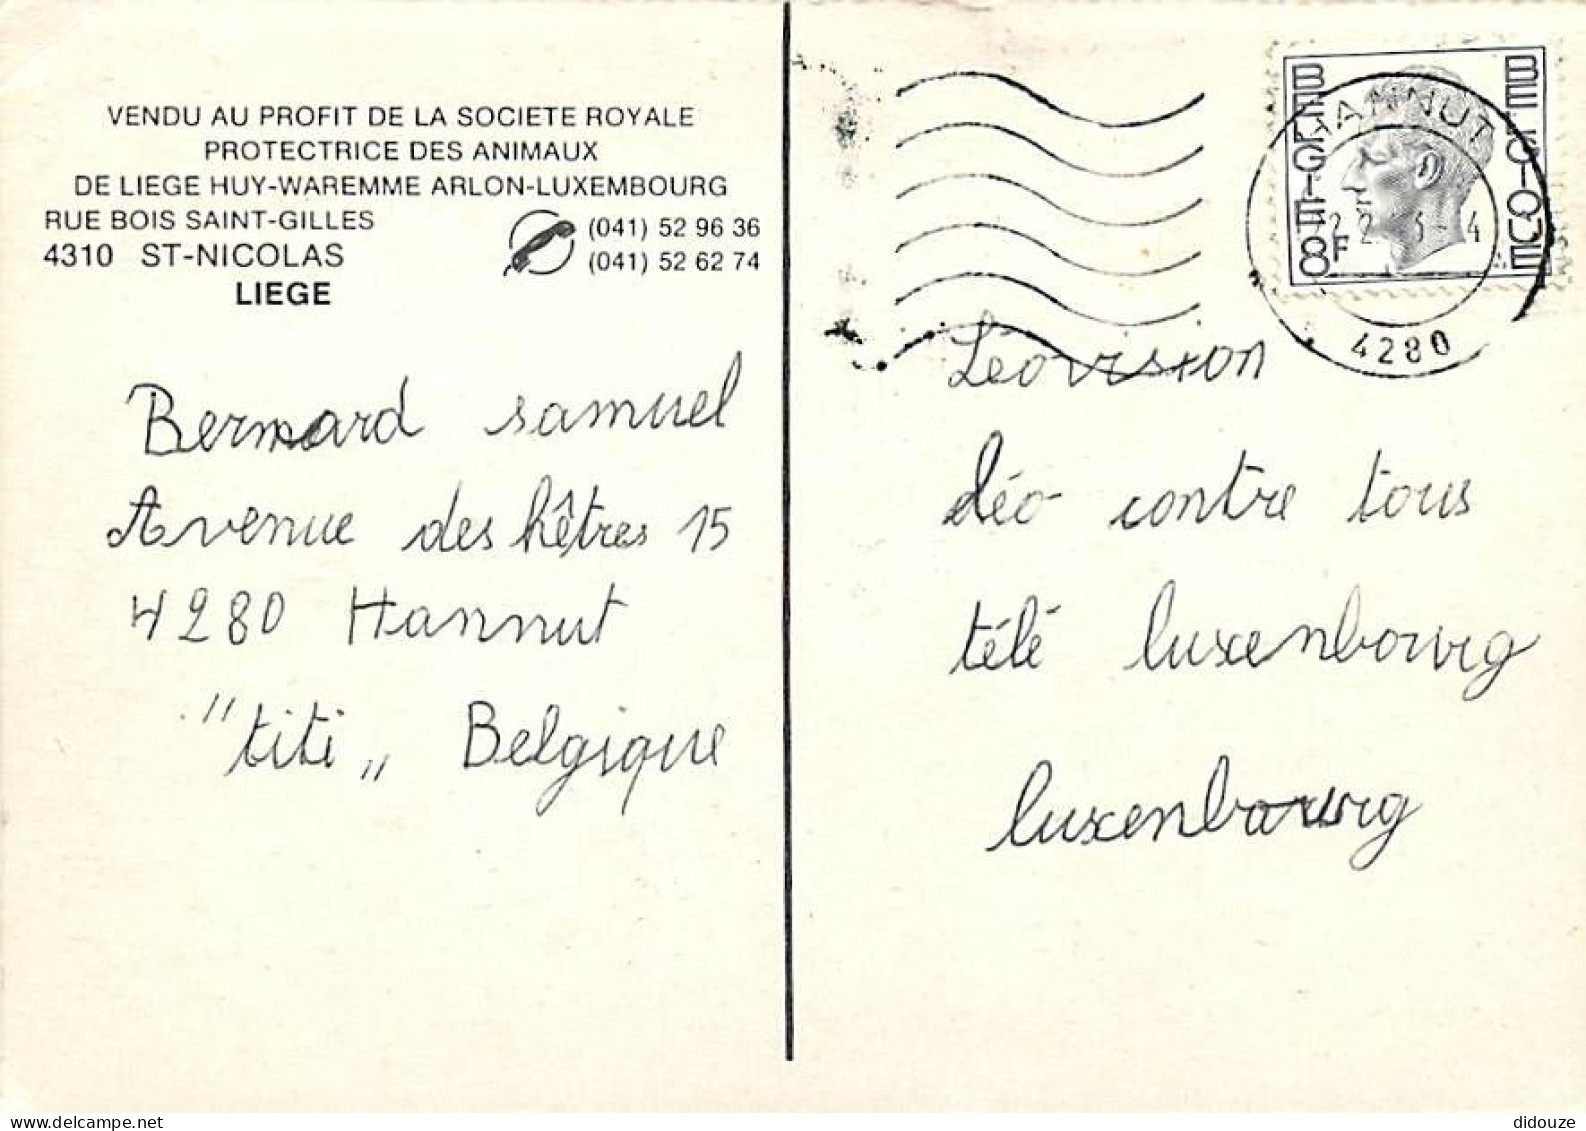 VENDU AU PROFIT DE LA SOCIETE ROYALE
PROTECTRICE DES ANIMAUX
DE LIEGE HUY-WAREMME ARLON-LUXEMBOURG
RUE BOIS SAINT-GILLES
(041) 52 96 36
4310 ST-NICOLAS
(041) 52 62 74
LIEGE
Bernard samuel
Avenue des hêtres 15
4280 Hannut
"titi„ Belgique
BELGIE 8F
BELGIQUE
HANNUT
4280
Léovision
Léo contre tous
télé luxenbourg
luxenbourg
didouze